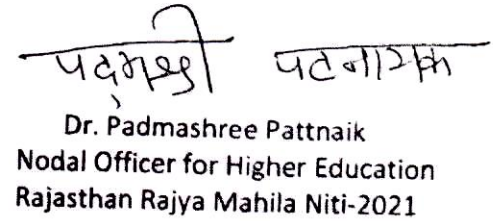 पद्मश्री पटनायक
Dr. Padmashree Pattnaik
Nodal Officer for Higher Education
Rajasthan Rajya Mahila Niti-2021